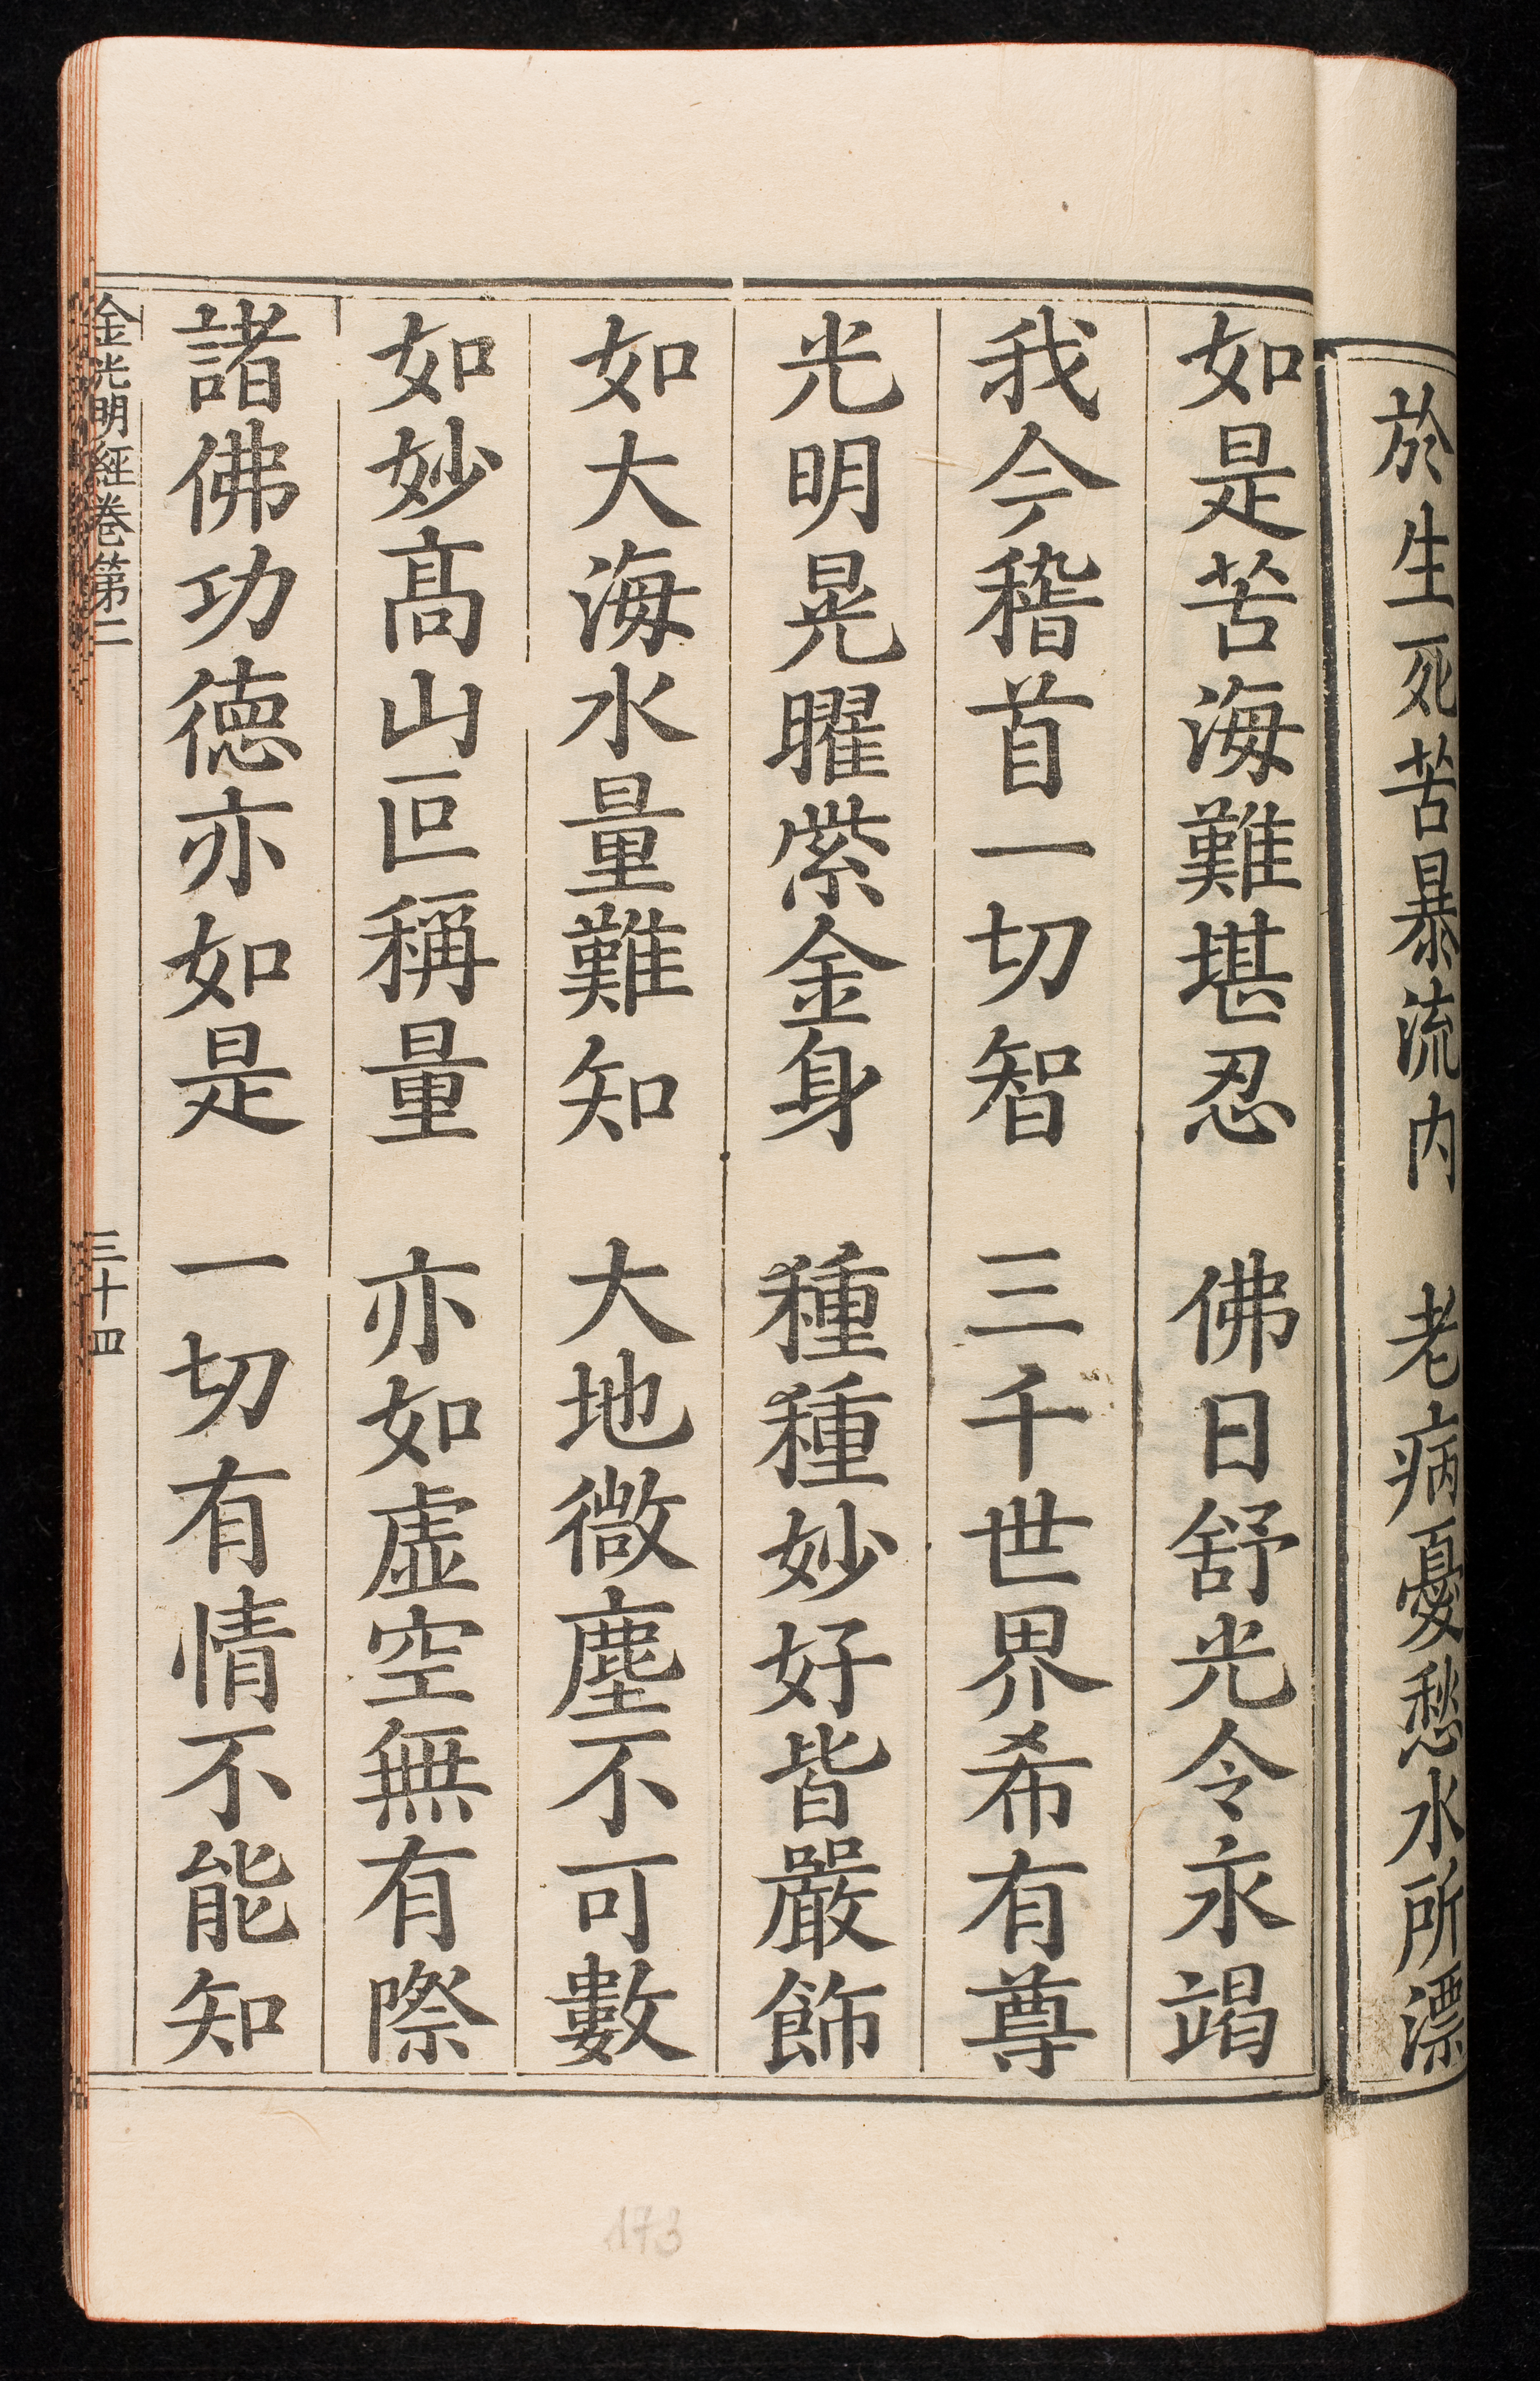 於生死苦暴流内　老病憂愁水所漂
如是苦海難堪忍　佛日舒光令永竭
我今稽首一切智　三千世界希有尊
光明晃曜紫金身　種種妙好皆嚴飾
如大海水量難知　大地微塵不可數
如妙高山叵稱量　亦如虛空無有際
諸佛功德亦如是　一切有情不能知
金光明經卷第二　三十四
173